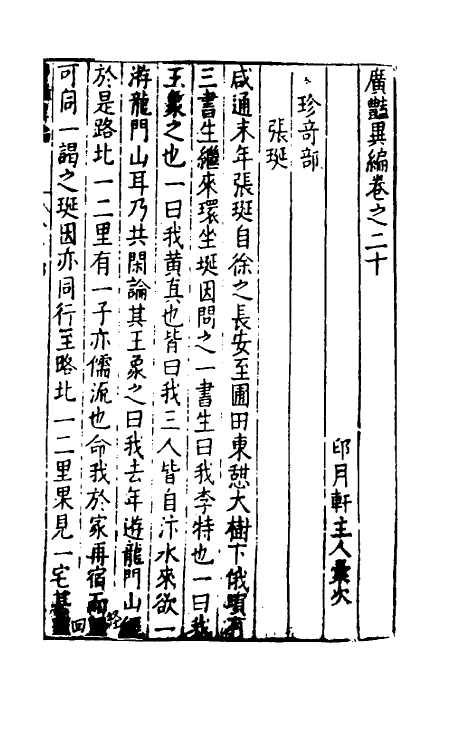 廣豔異編卷之二十
印月軒主人彙次
珍奇部
張珽
咸通末年張珽自徐之長安至圃田東憩大樹下俄頃有
三書生繼來環坐珽因問之一書生曰我李特也一曰我
王象之也一曰我黃真也皆曰我三人皆自汴水來欲一
游龍門山耳乃共閑論其王象之曰我去年遊龍門山經
於是路北一二里有一子亦儒流也命我於家再宿而
回經
可同一謁之珽因亦同行至路北一二里果見一宅甚